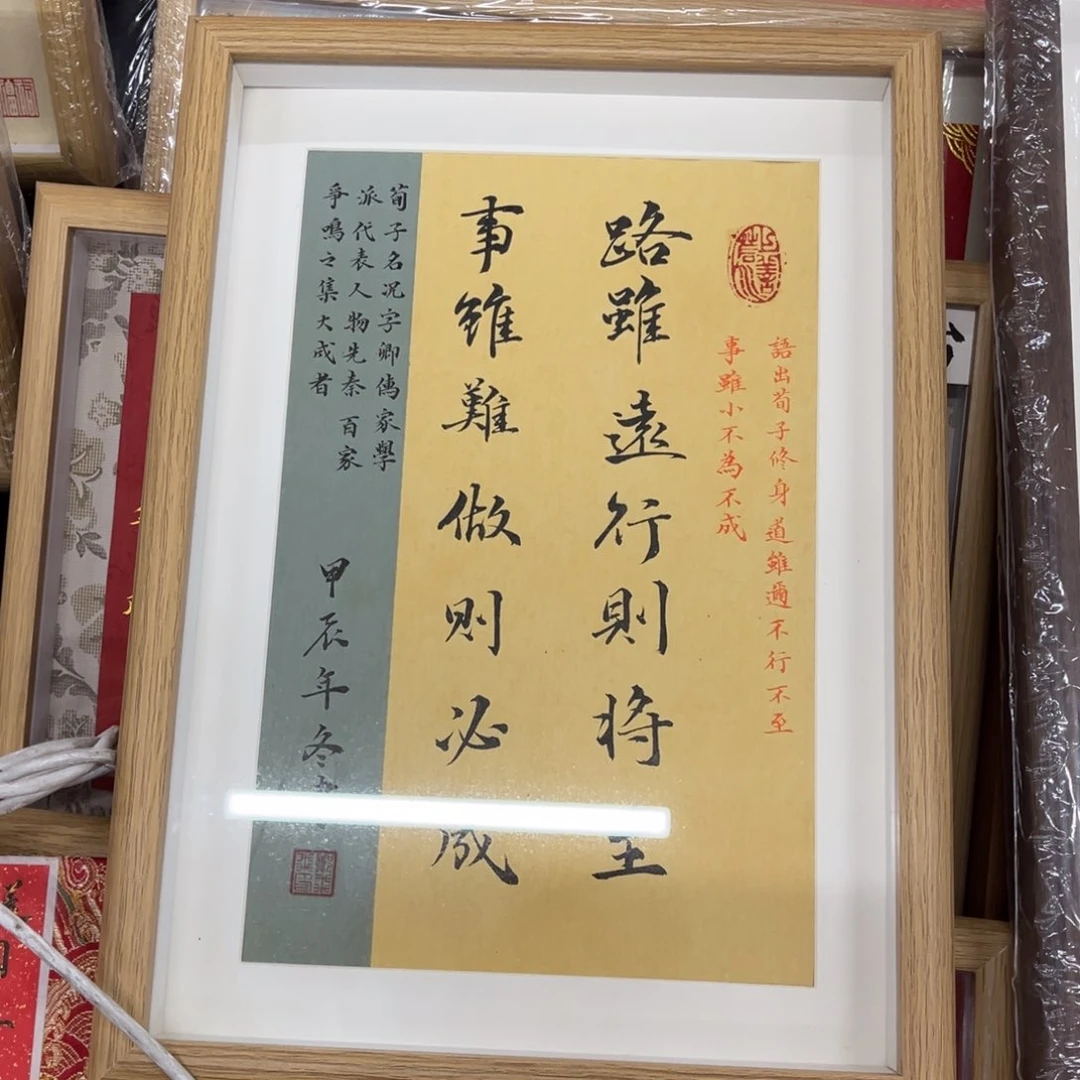 語出荀子修身道雖邇不行不至
事雖小不為不成
路雖遠行則将至
事雖難做則必成
荀子名況字卿儒家學
派代表人物先秦百家
爭鳴之集大成者
甲辰年冬